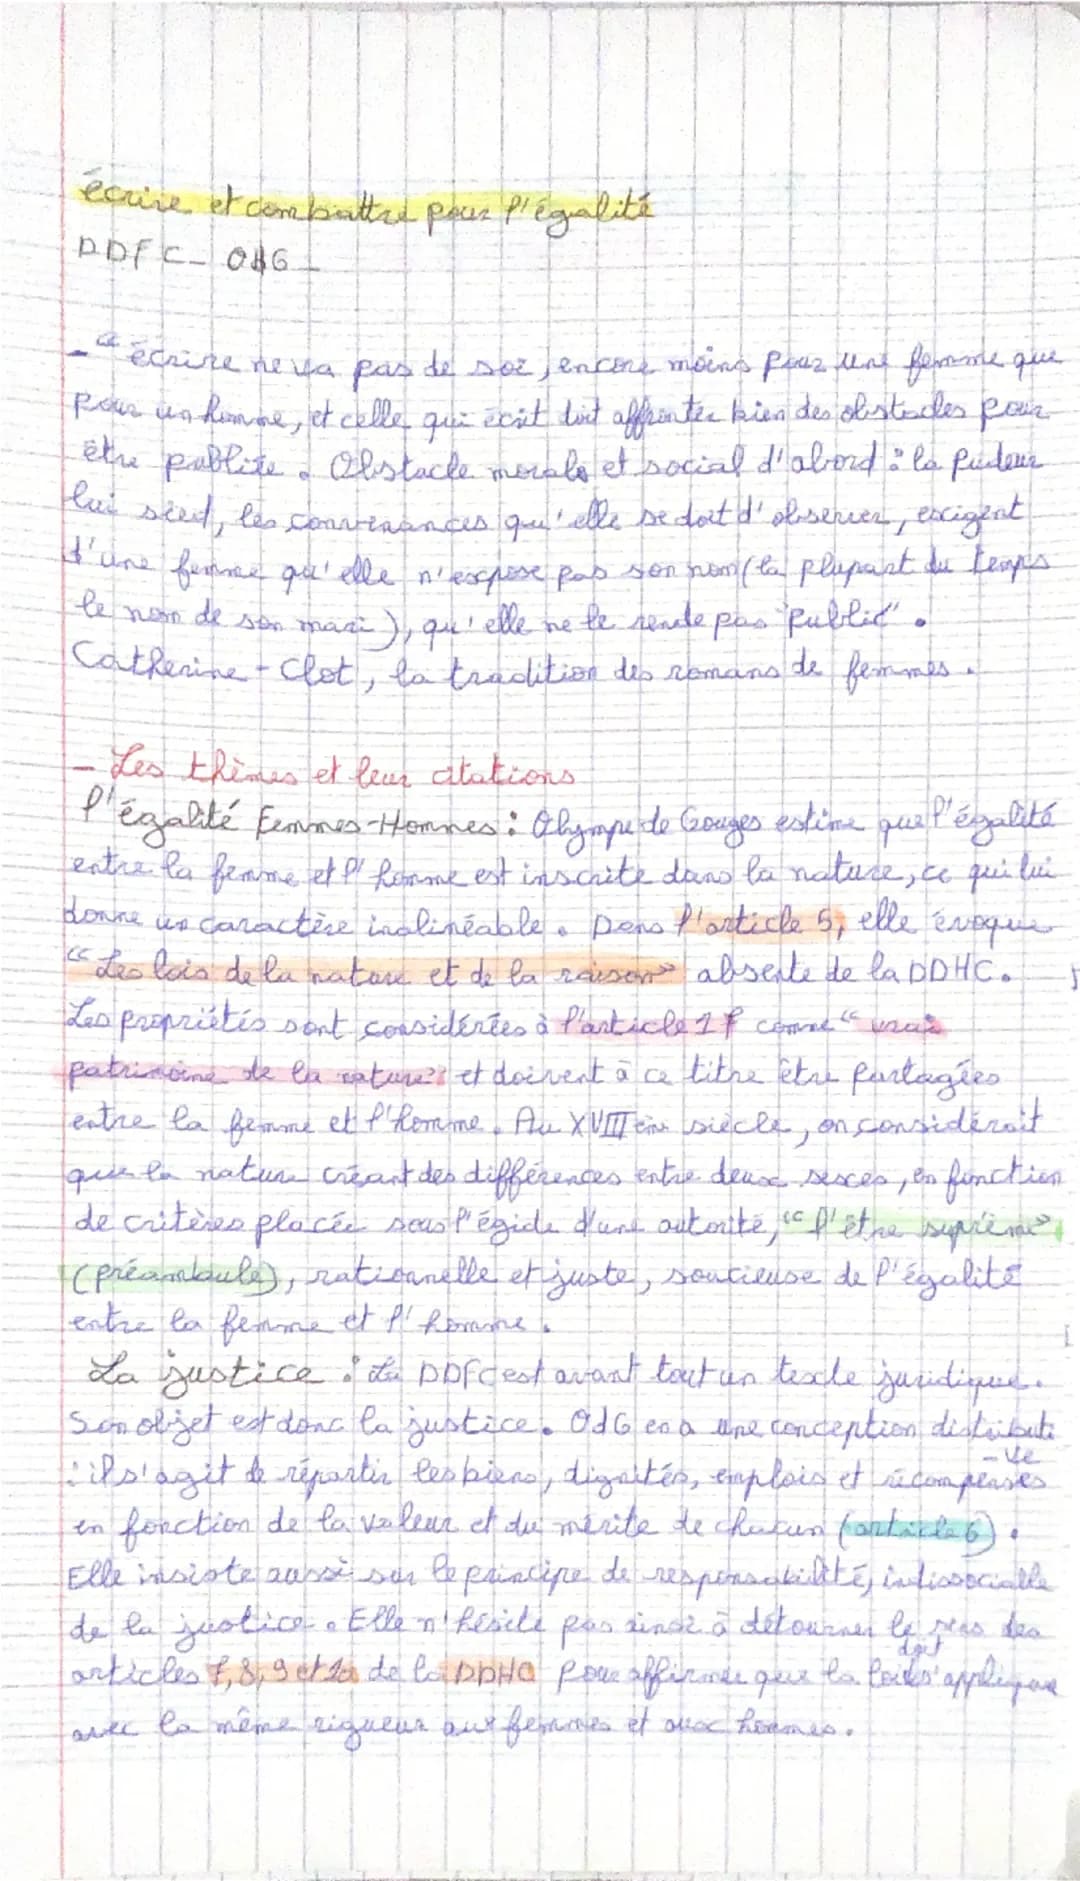 écrire et combattre pour l'égalité
DDFC - OdG -
- "écrire ne va pas de soi, encore moins pour une femme que
pour un homme, et celle qui écrit doit affronter bien des obstacles pour
être publiée. Obstacle morale et social d'abord : la pudeur
lui sied, les convenances qu'elle se doit d'observer, exigent
d'une femme qu'elle n'expose pas son nom (la plupart du temps
le nom de son mari), qu'elle ne le rende pas "public".
Catherine - Clot, la tradition des romans de femmes.
- Les thèmes et leur citations
l'égalité Femmes-Hommes : Olympe de Gouges estime que l'égalité
entre la femme et l'homme est inscrite dans la nature, ce qui lui
donne un caractère inalinéable. Dans l'article 5, elle évoque
"Les lois de la nature et de la raison" absente de la DDHC.
Les propriétés sont considérées à l'article 17 comme "vrai
patrimoine de la nature" et doivent à ce titre être partagées
entre la femme et l'homme. Au XVIIIème siècle, on considérait
que la nature créant des différences entre deux sexes, en fonction
de critères placée sous l'égide d'une autorité, "l'être suprême"
(préambule), rationnelle et juste, soucieuse de l'égalité
entre la femme et l'homme.
La justice : La DDFC est avant tout un texte juridique.
Son objet est donc la justice. OdG en a une conception distributi
-ve
: il s'agit de répartir les biens, dignités, emplois et récompenses
en fonction de la valeur et du mérite de chacun (article 6).
Elle insiste aussi sur le principe de responsabilité, indissociable
de la justice. Elle n'hésite pas ainsi à détourner le sens des
articles 7, 8, 9 et 10 de la DDHC pour affirmer que la loi doit s'applique
avec la même rigueur aux femmes et aux hommes.